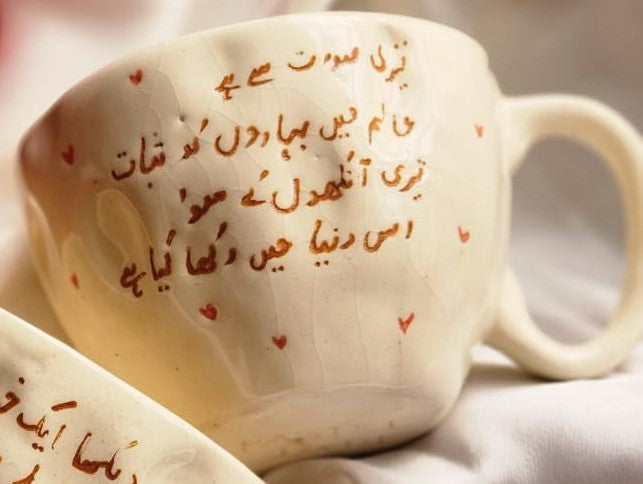 تیری صورت سے ہے
عالم میں بہاروں کو ثبات
تیری آنکھوں کے سوا
اس دنیا میں رکھا کیا ہے
ایک